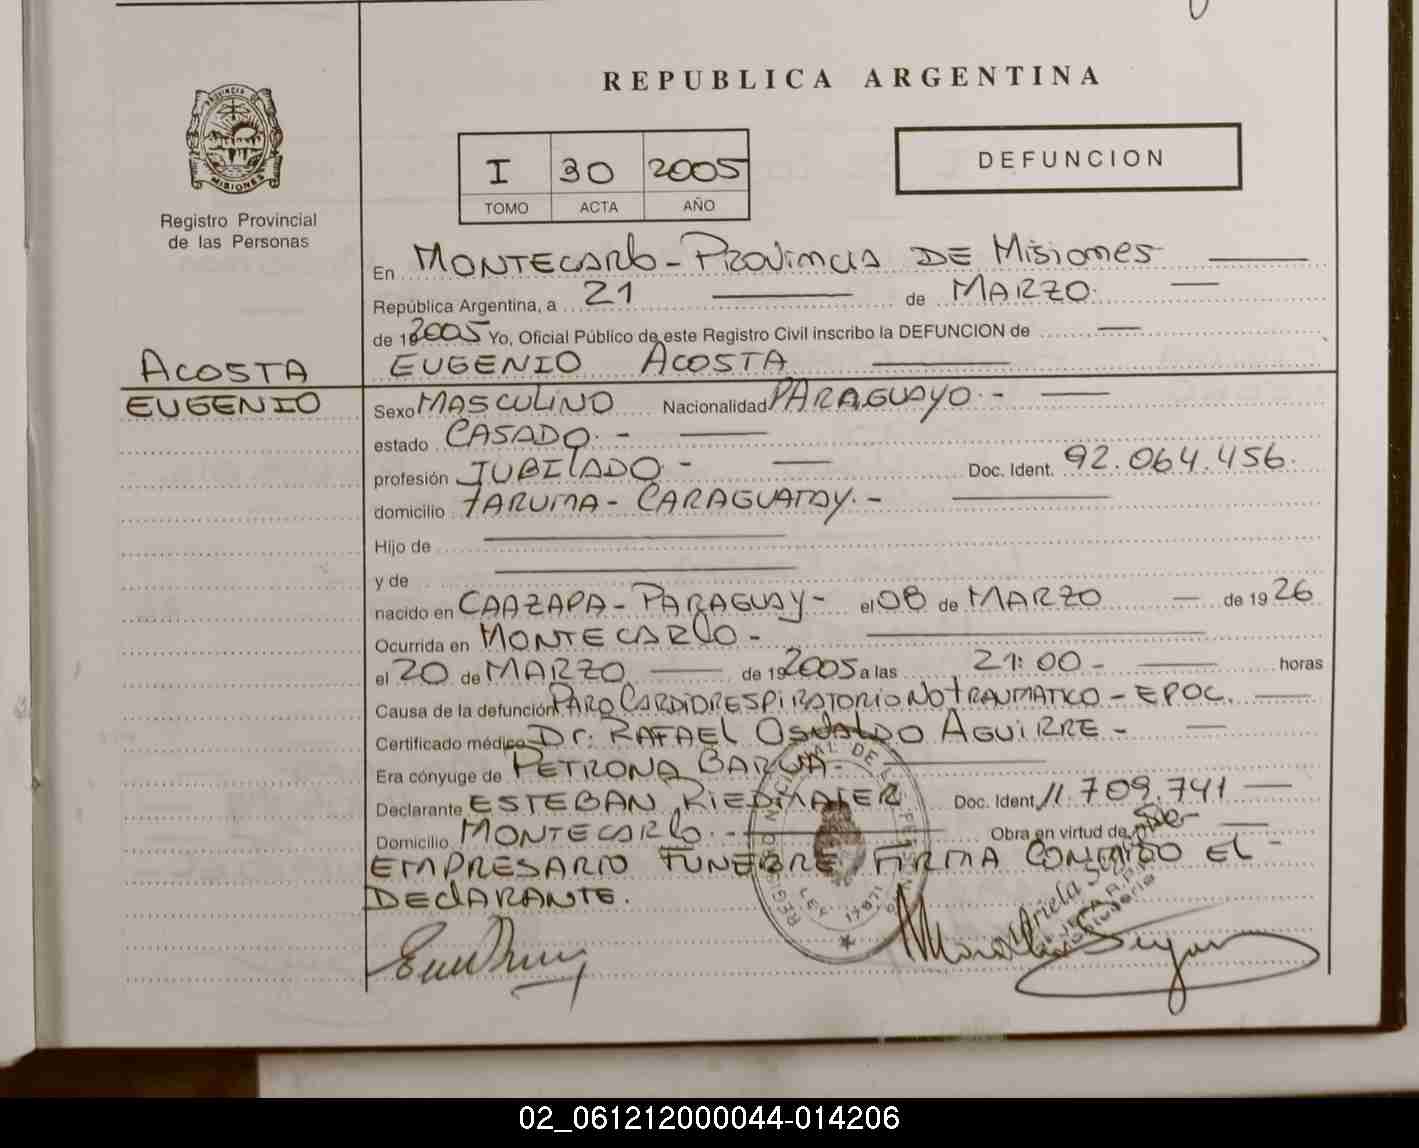 REPUBLICA ARGENTINA
PROVINCIA DE
MISIONES
Registro Provincial
de las Personas
I 30 2005
TOMO ACTA AÑO
DEFUNCION
En MONTECARLO - PROVINCIA DE MISIONES
República Argentina, a 21 de MARZO.
de 19 2005 Yo, Oficial Público de este Registro Civil inscribo la DEFUNCION de
EUGENIO ACOSTA
ACOSTA
EUGENIO
Sexo MASCULINO Nacionalidad PARAGUAYO.-
estado CASADO.-
profesión JUBILADO - Doc. Ident. 92.064.456.
domicilio TARUMA - CARAGUATAY.-
Hijo de
y de
nacido en CAAZAPA - PARAGUAY - el 08 de MARZO de 1926
Ocurrida en MONTECARLO -
el 20 de MARZO de 19 2005 a las 21:00 - horas
Causa de la defunción PARO CARDIORESPIRATORIO NO TRAUMATICO - EPOC.
Certificado médico Dr. RAFAEL OSVALDO AGUIRRE -
Era cónyuge de PETRONA BARUA -
Declarante ESTEBAN RIEDMAIER Doc. Ident. 11.709.741
Domicilio MONTECARLO.- Obra en virtud de Ser
EMPRESARIO FUNEBRE FIRMA CONMIGO EL -
DECLARANTE.
02_061212000044-014206